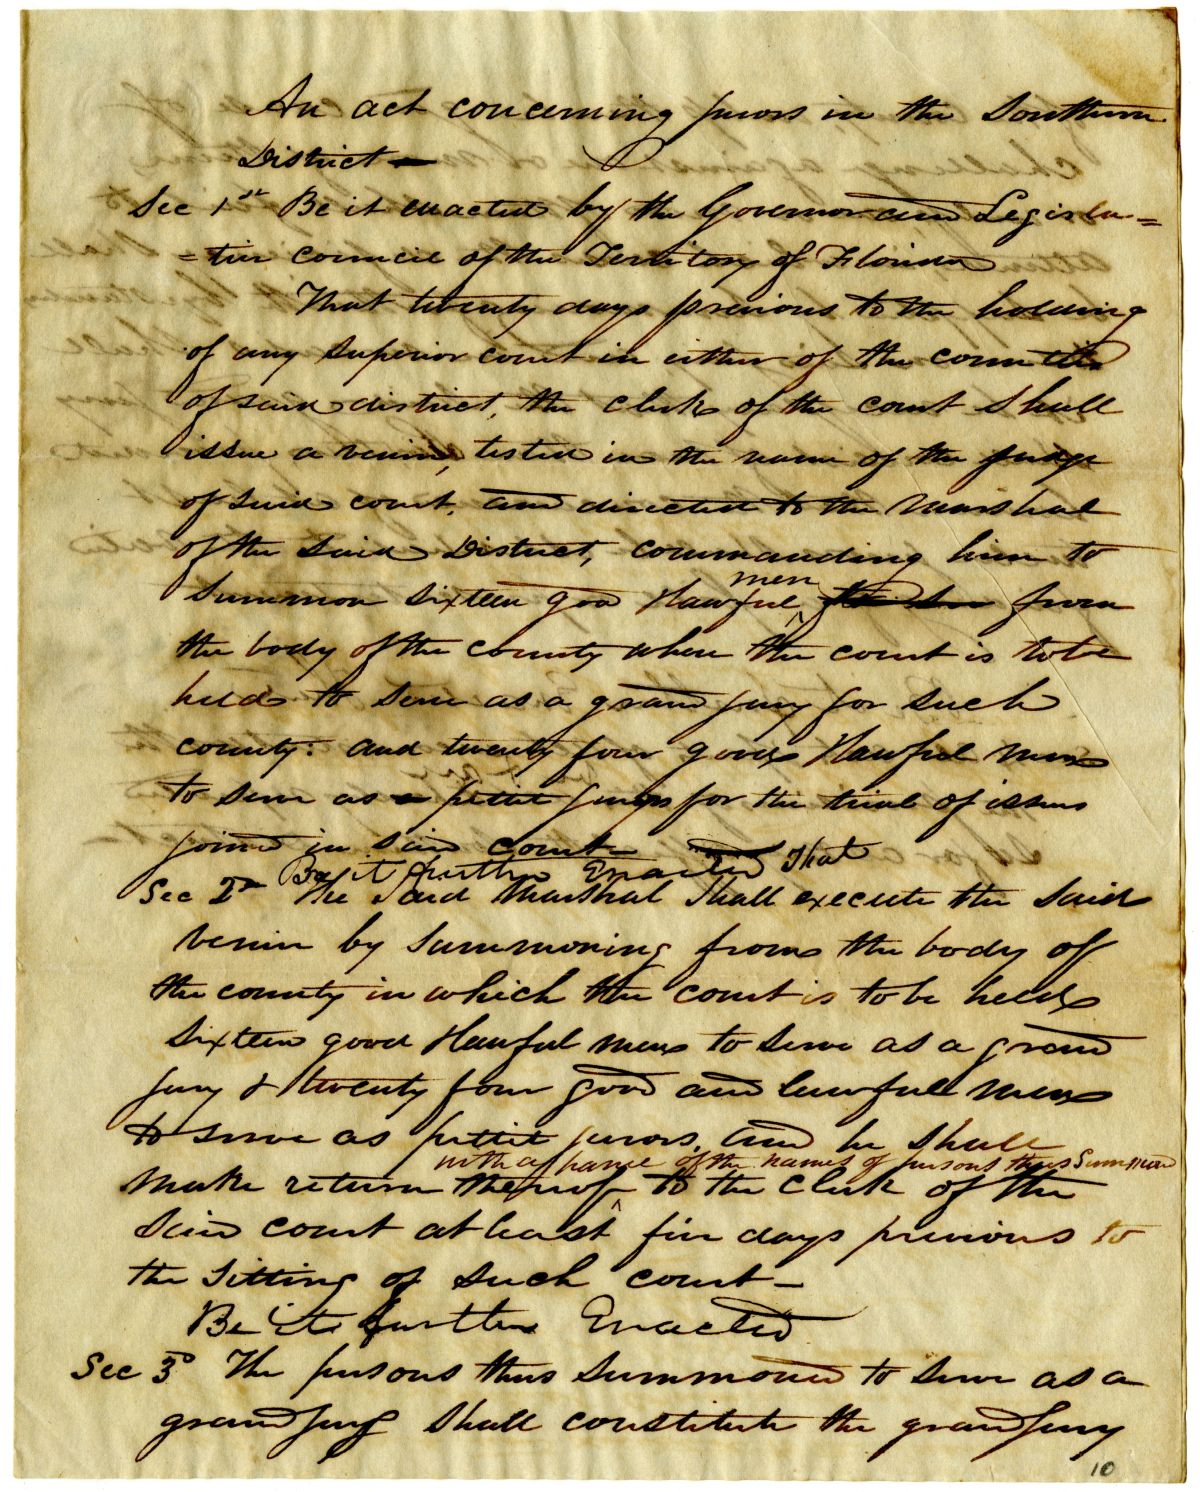 An act concerning jurors in the Southern
District –
Sec 1st Be it enacted by the Governor and Legisla=
=tive council of the Territory of Florida
That twenty days previous to the holding
of any superior court in either of the counties
of said district, the clerk of the court shall
issue a venire, tested in the name of the judge
of said court, and directed to the marshal
of the said District, commanding him to
men
summon sixteen good & lawful ^ from
the body of the county where the court is to be
held to serve as a grand jury for such
county: and twenty four good & lawful men
to serve as petit jurors for the trial of issues
joined in said court
Be it further Enacted That
Sec 2d The Said Marshal Shall execute the said
venire by summoning from the body of
the county in which the court is to be held
sixteen good & lawful men to serve as a grand
jury & twenty four good and lawful men
to serve as pettit jurors, and he shall
with a panel of the names of persons thus Summoned
make return thereof ^ to the clerk of the
said court at least five days previous to
the sitting of such court –
Be it further Enacted
Sec 3d The persons thus summoned to serve as a
grand jury shall constitute the grand jury
10